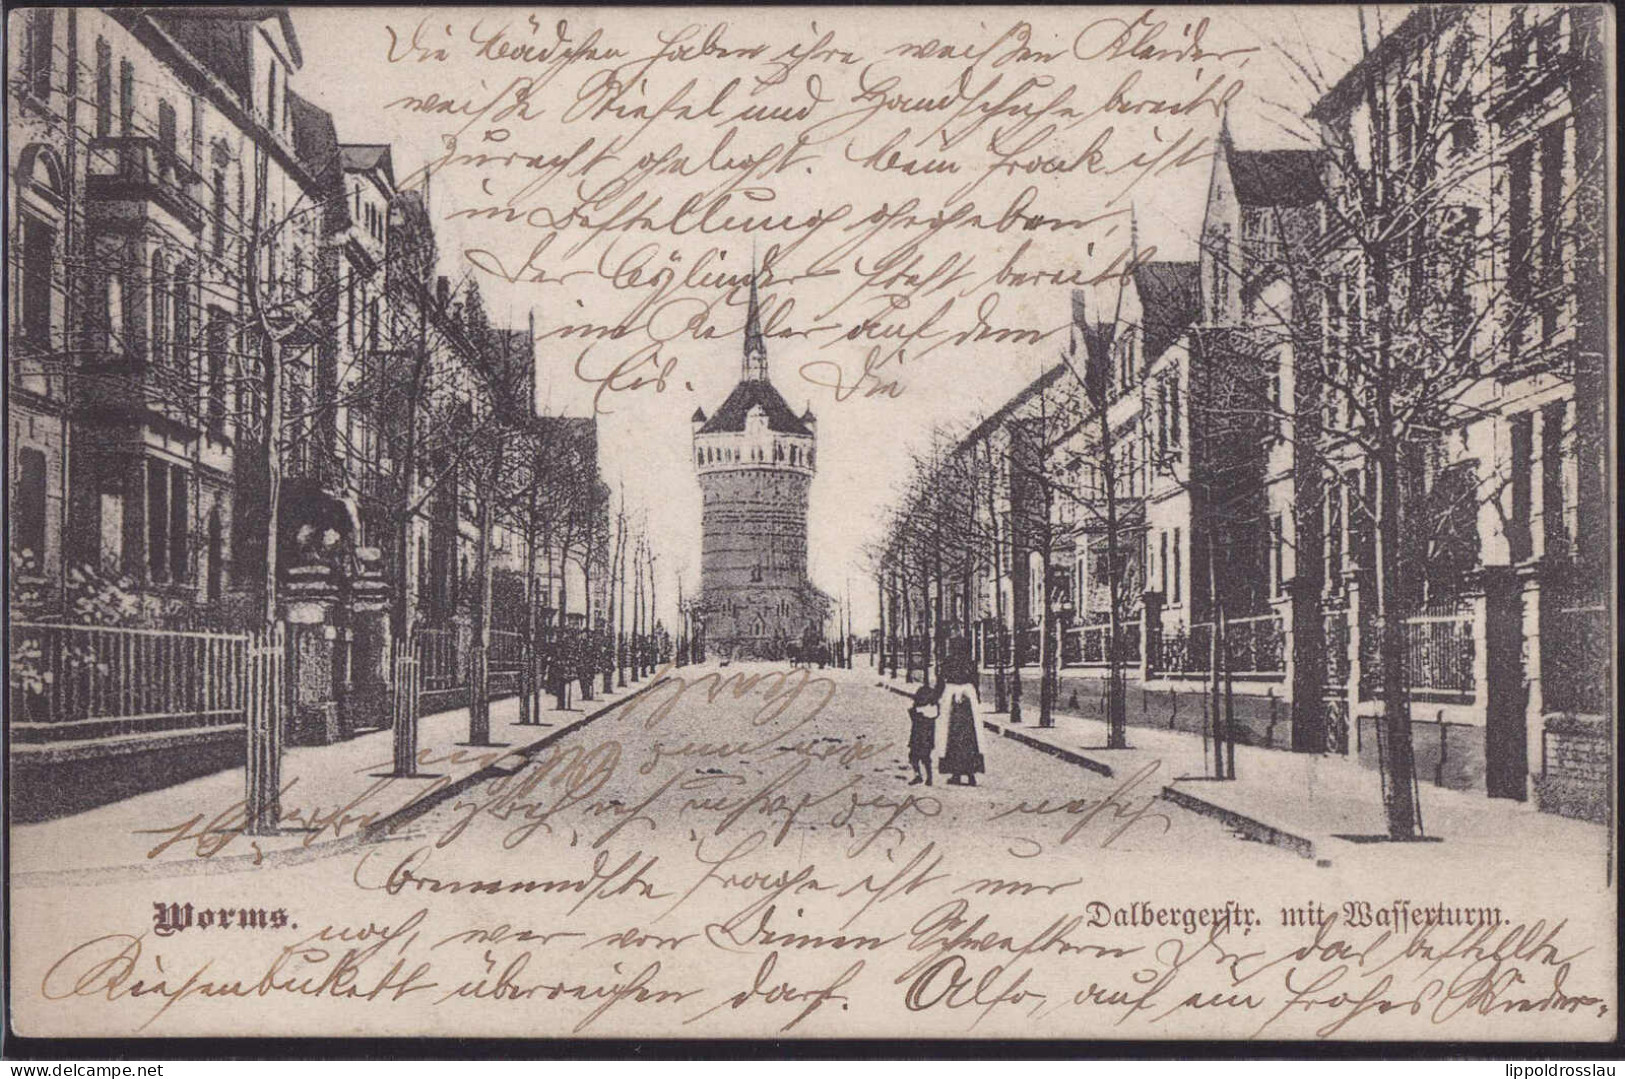 Die Mädchen haben ihre weißen Kleider,
weiße Stiefel und Handschuhe bereits
zurecht gelegt. Mein Frack ist
in Bestellung gegeben,
der Cylinder steht bereits
im Keller auf dem
Eis. Die
brennendste Frage ist nur
noch, wer von Deinen Schwestern Dir das bestellte
Riesenbukett überreichen darf. Also, auf ein frohes Wieder-
Worms.
Dalbergerstr. mit Wasserturm.
sehen.
Carl
delcampe.net
lippoldrosslau